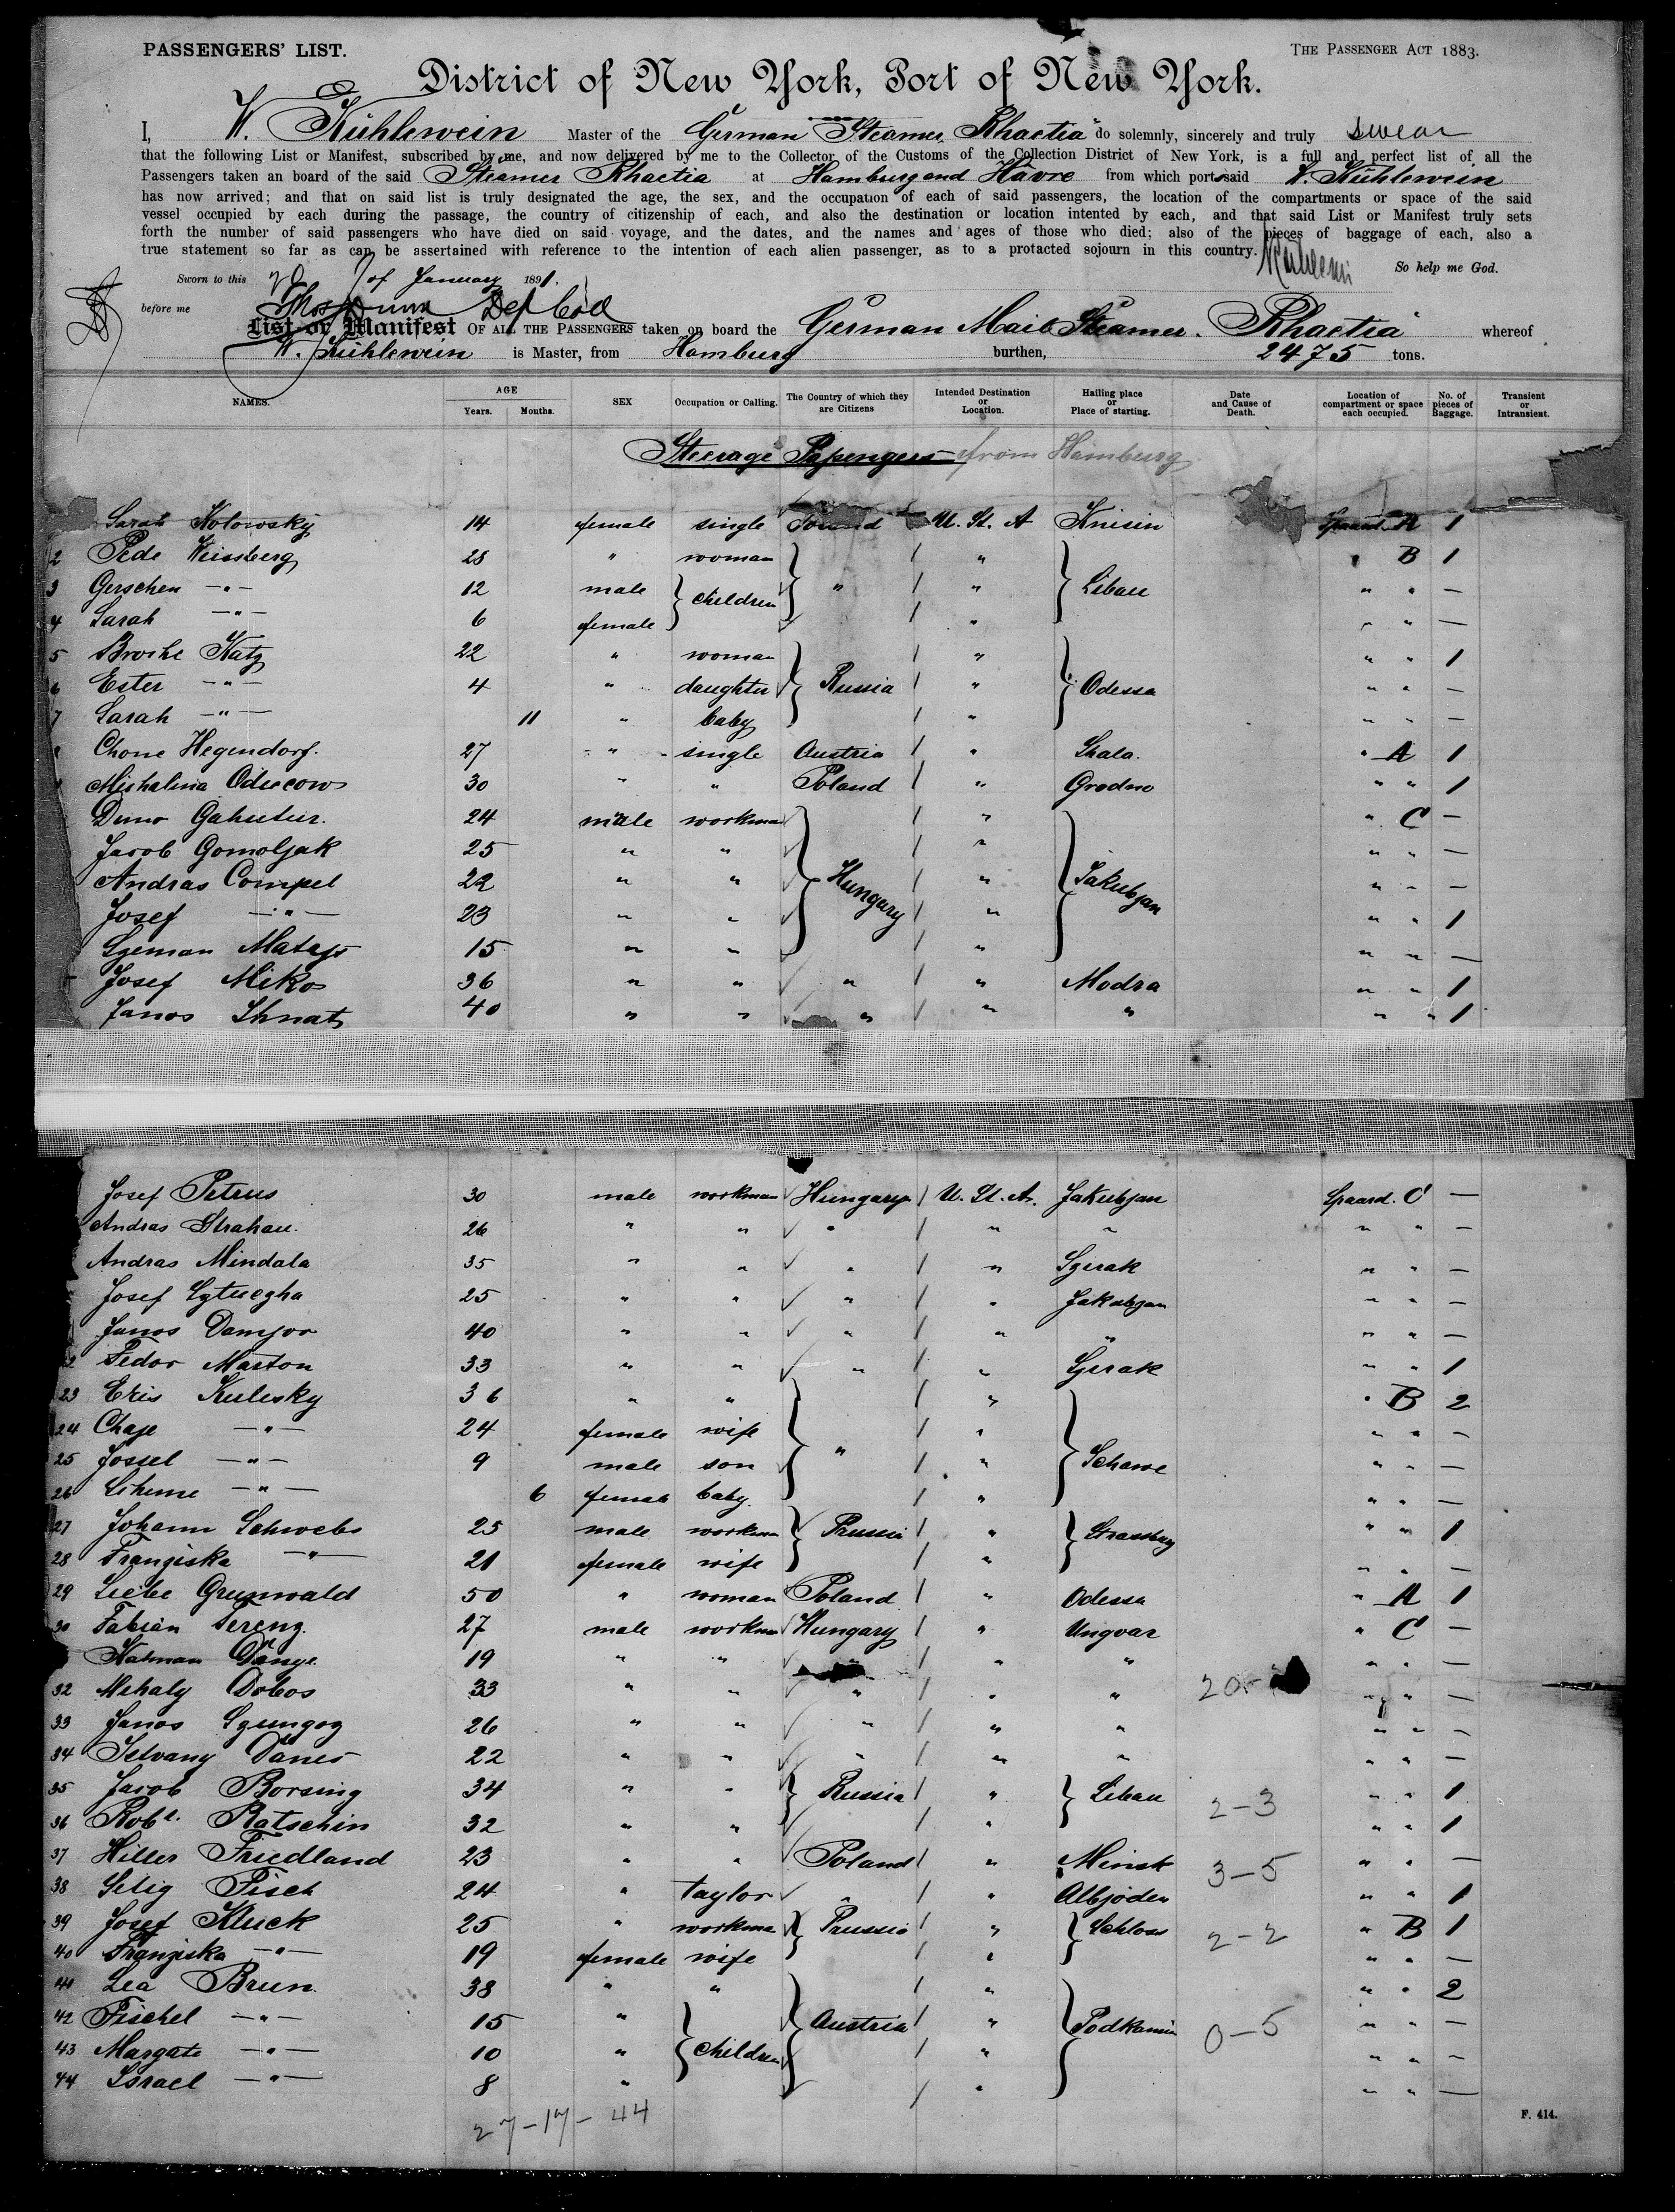 PASSENGERS' LIST.
THE PASSENGER ACT 1883.
District of New York, Port of New York.
I, W. Kühlewein Master of the German Steamer "Rhaetia" do solemnly, sincerely and truly swear
that the following List or Manifest, subscribed by me, and now delivered by me to the Collector of the Customs of the Collection District of New York, is a full and perfect list of all the
Passengers taken an board of the said Steamer Rhaetia at Hamburg and Hâvre from which ports said W. Kühlewein
has now arrived; and that on said list is truly designated the age, the sex, and the occupation of each of said passengers, the location of the compartments or space of the said
vessel occupied by each during the passage, the country of citizenship of each, and also the destination or location intented by each, and that said List or Manifest truly sets
forth the number of said passengers who have died on said voyage, and the dates, and the names and ages of those who died; also of the pieces of baggage of each, also a
true statement so far as can be assertained with reference to the intention of each alien passenger, as to a protacted sojourn in this country.
So help me God.
Sworn to this of January 1891.
before me Thos Dunn Dep Col
List or Manifest OF ALL THE PASSENGERS taken on board the German Mail Steamer "Rhaetia" whereof
W. Kühlewein is Master, from Hamburg burthen, 2475 tons.
NAMES. AGE Years. Months. SEX Occupation or Calling. The Country of which they are Citizens Intended Destination or Location. Hailing place or Place of starting. Date and Cause of Death. Location of compartment or space each occupied. No. of pieces of Baggage. Transient or Intransient.
Steerage Passengers from Hamburg
Sarah Kolowsky 14 female single Poland U. St. A Knisin A 1
2 Pede Weissberg 28 " woman " B 1
3 Gerschen -"- 12 male children " " Libau " " —
4 Sarah -"- 6 female " " " —
5 Broche Katz 22 " woman " " " 1
6 Ester -"- 4 " daughter Russia " Odessa " " —
7 Sarah -"- 11 " baby " " " —
Chone Hegendorf. 27 " single Austria " Skala. " A 1
Mishalina 30 " " Poland " Grodno " " 1
24 male workman " " C —
Jacob Gomoljak 25 " " " " " —
Andras Compel 22 " " Hungary " Jakubjan " " —
Josef -"- 23 " " " " " 1
15 " " " " " —
Josef Miko 36 " " " " Modra " " 1
Janos Ihnat 40 " " " " " " " 1
Josef Petrus 30 male workman Hungary U. St. A. Jakubjan C —
Andras 26 " " " " " " " —
Andras Mindala 35 " " " " " " —
Josef 25 " " " " Jakubjan " " —
Janos Damjor 40 " " " " " " " —
Fedor Marton 33 " " " " " " 1
23 Eris Kulesky 36 " " " " B 2
24 Chaje -"- 24 female wife " " " —
25 Jossel -"- 9 male son " " Schawe " " —
26 -"- 6 female baby. " " " —
27 Johann Schwebs 25 male workman Prussia " Strassburg " " 1
28 Franziska -"- 21 female wife " " " —
29 Liebe Grunwald 50 " woman Poland " Odessa " A 1
30 Fabian Ferenz. 27 male workman Hungary " Ungvar " C —
Kalman 19 " " " " " " " —
32 Mihaly Dobos 33 " " " " " " " —
33 Janos 26 " " " " " " " —
34 Istvany Danes 22 " " " " " " " —
35 Jacob Borsing 34 " " Russia " Libau 2-3 " " 1
36 Robt. Ratschin 32 " " " " " 1
37 Hiller Friedland 23 " " Poland " Minsk 3-5 " " —
38 Selig Fisch 24 " taylor " Albjoden " " 1
39 Josef Kluck 25 " workman Prussia " Schloss 2-2 " B 1
40 Franziska -"- 19 female wife " " " —
41 Lea Brun. 38 " " " " " 2
42 Fischel -"- 15 " Austria " Podkamin 0-5 " " —
43 Margate -"- 10 " children " " " —
44 Israel -"- 8 " " " " —
27-17-44
F. 414.